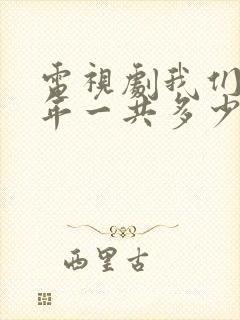 電視劇我们
年一共多少
西里古